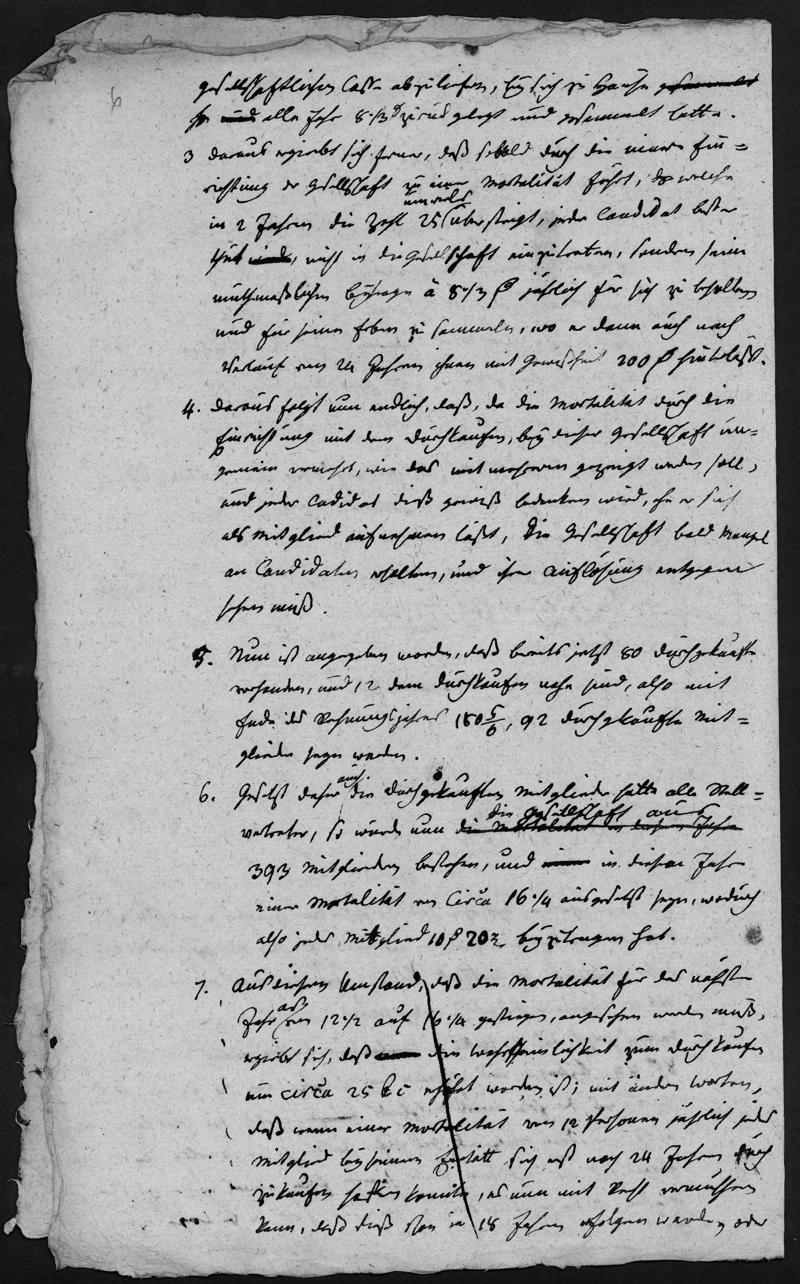 6
gesellschaftlichen Casse abzuliefern, für sich zu Hause gesammelt
hr und alle Jahr 8 1/3 zurück gelegt und gesammelt hätte.
3 daraus ergiebt sich ferner, daß sobald durch die innere Ein=
richtung der Gesellschaft zu einer Mortalität führt, welche
in 2 Jahren die Zahl 25 übersteigt, jeder Candidat besser
thut, nicht in die Gesellschaft einzutreten, sondern seine
muthmaßlichen Beyträge à 8 1/3 jährlich für sich zu behalten
und für seine Erben zu sammeln, wo er dann auch nach
Verlauf von 24 Jahren ihnen mit Gewisheit 200 hinterläßt.
4. daraus folgt nun endlich, daß, da die Mortalität durch die
Einrichtung mit dem Durchkaufen, bey dieser Gesellschaft un=
gemein vermehrt, wie das mit mehreren gezeigt werden soll,
und jeder Cadidat dieß gewiß bedenken wird, ehe er sich
als Mitglied aufnehmen läßt, die Gesellschaft bald Mangel
an Candidaten erhalten, und ihrer Auflösung entgegen
sehen muß.
5. Nun ist angegeben worden, daß bereits jetzt 80 durchgekaufte
vorhanden, und 12 dem Durchkaufen nahe sind, also mit
Ende des Rechnungsjahres 180 5/6, 92 durchgekaufte Mit=
glieder seyn werden.
6. Gesetzt daher auch die durchgekauften Mitglieder hätten alle Stell=
vertreter, so würde nun die Gesellschaft aus
393 Mitgliedern bestehen, und in diesem Jahr
einer Mortalität von Circa 16 1/4 ausgesetzt seyn, wodurch
also jedes Mitglied 10 20 beyzutragen hat.
7. Aus diesem Umstand, daß die Mortalität für das nächste
Jahr von 12 1/2 auf 16 1/4 gestiegen, angesehen werden muß,
ergiebt sich, daß die Wahrscheinlichkeit zum Durchkaufen
um circa 25 erhöht worden ist; mit andern Worten,
daß wenn einer Mortalität von 12 Personen jährlich jedes
Mitglied bey seinem Eintritt sich erst nach 24 Jahren durch
zukaufen hoffen konnte, es nun mit Recht vermuthen
kann, daß dieß schon in 18 Jahren erfolgen werde, oder